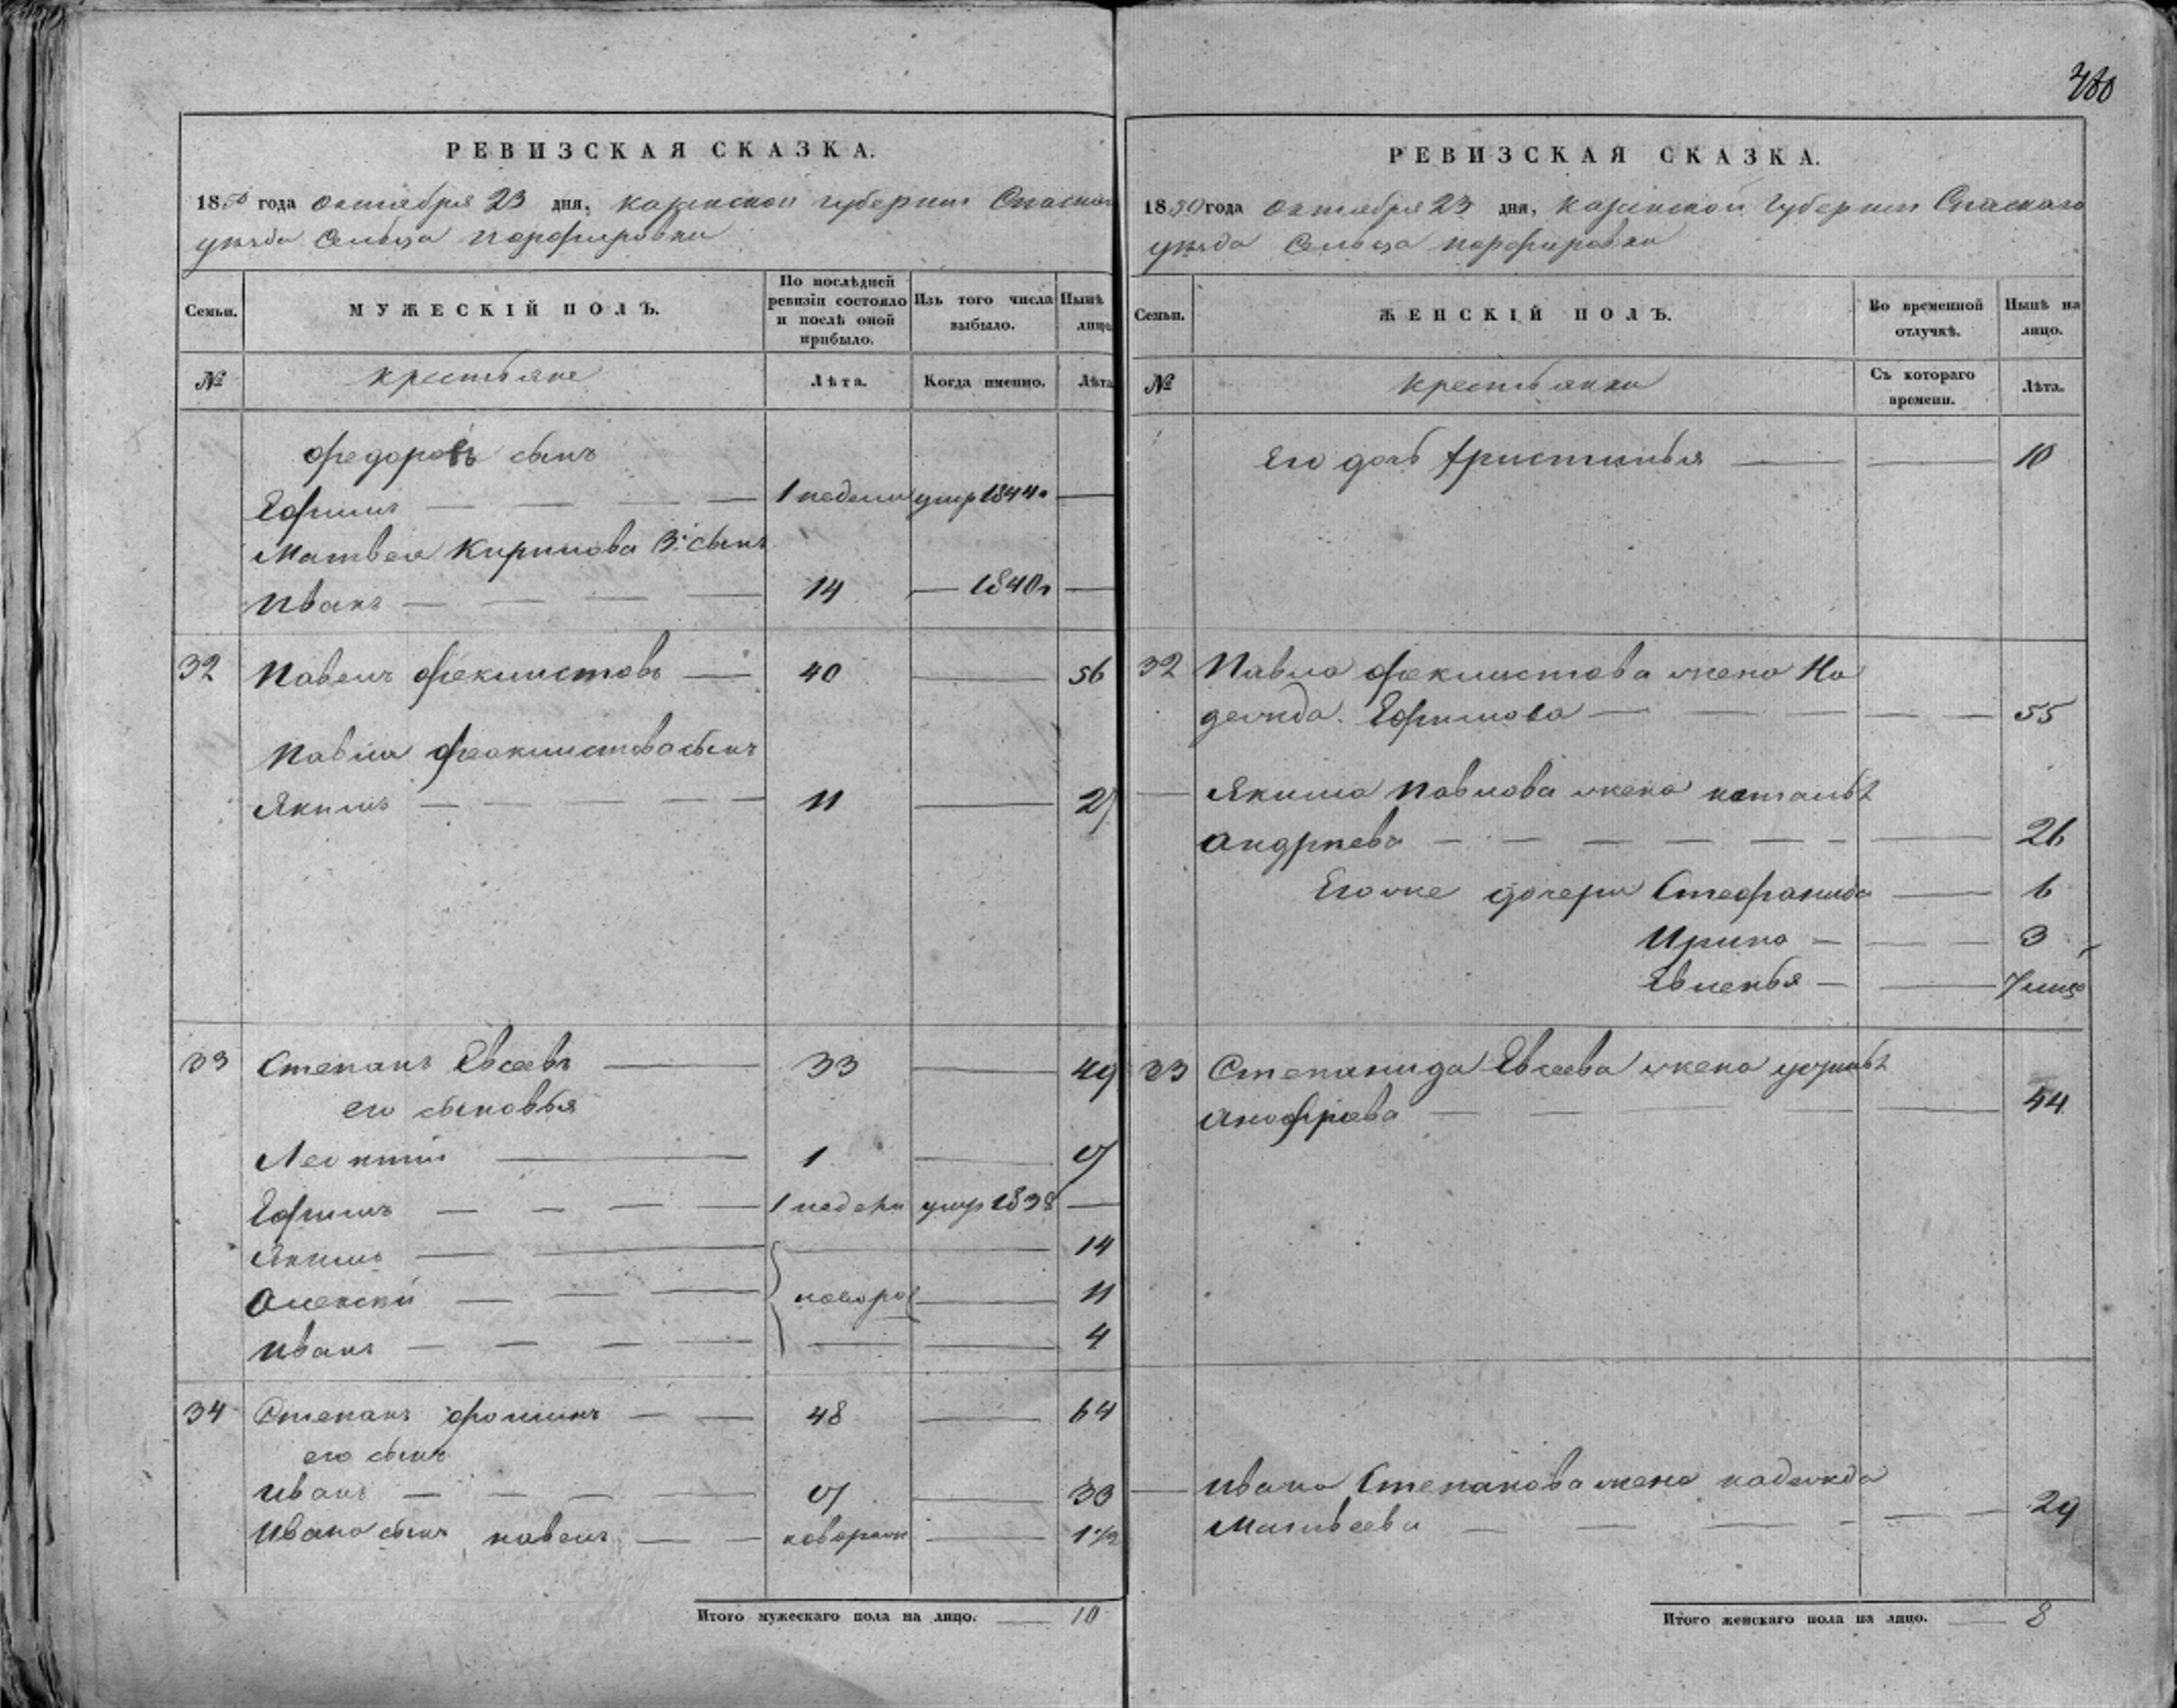 480
РЕВИЗСКАЯ СКАЗКА.
1850 года октября 23 дня, казанской губернии Спаскаго
уезда Сельца порфировки
Семьи.
МУЖЕСКІЙ ПОЛЪ.
По послѣдней ревизіи состояло и послѣ оной прибыло.
Изъ того числа выбыло.
Нынѣ лицо
№
крестьяне
Лѣта.
Когда именно.
Лѣта
федоровъ сынъ
Ефимъ — 1 недели умр 1844г —
Матвея Кирилова 3й сынъ
Иванъ — 14 — 1840г —
32 Павелъ феклистовъ — 40 — 56
Павла феоклистова сынъ
Якимъ — 11 — 27
33 Степанъ Евсеевъ — 33 — 49
его сыновья
Леонтий — 1 — 17
Ефимъ — 1 недели умр 1838 —
Якимъ — 14
Алексей — новорож — 11
Иванъ — 4
34 Степанъ фоминъ — 48 — 64
его сынъ
Иванъ — 17 — 33
Ивана сынъ павелъ — новорож — 1 1/2
Итого мужескаго пола на лицо. — 10
РЕВИЗСКАЯ СКАЗКА.
1850 года октября 23 дня, казанской Губернии Спаскаго
уезда Сельца порфировки
Семьи.
ЖЕНСКІЙ ПОЛЪ.
Во временной отлучкѣ.
Нынѣ на лицо.
№
крестьянки
Съ котораго времени.
Лѣта.
Его дочь Христинья — 10
32 Павла феклистова жена На
дежда Ефимова — 55
— Якима Павлова жена наталья
Андреева — 26
Егоже дочери Стефанида — 6
Ирина — 3
Евленья — 7 мцъ
33 Степанида Евсеева жена устинья
Анофриева — 44
— Ивана Степанова жена надежда
Матвеева — 29
Итого женскаго пола на лицо. — 8